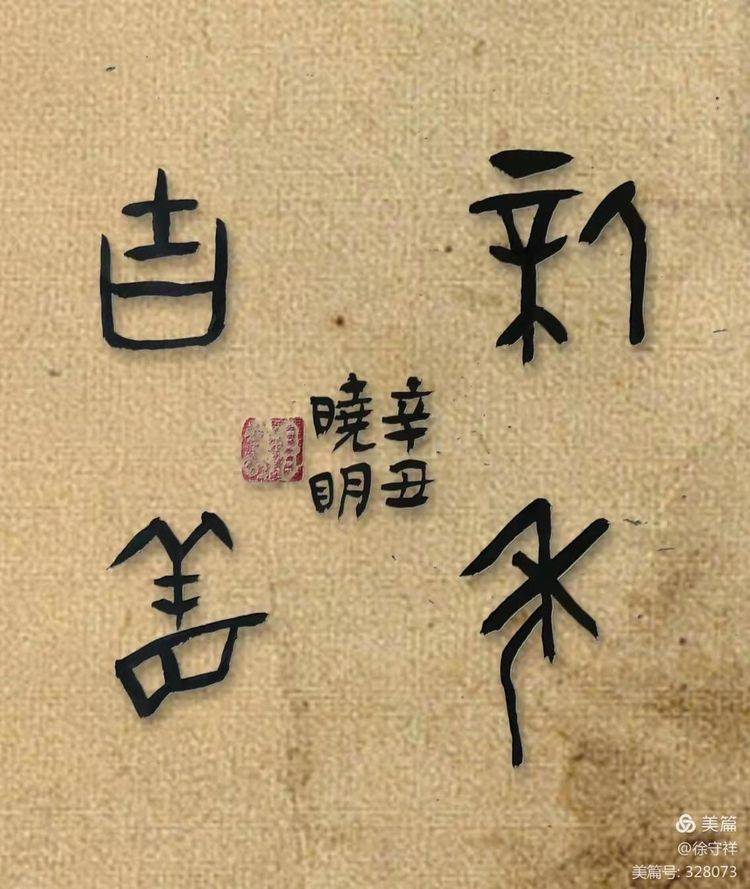 新年
吉
辛丑
曉明
美篇
@徐守祥
美篇号: 328073